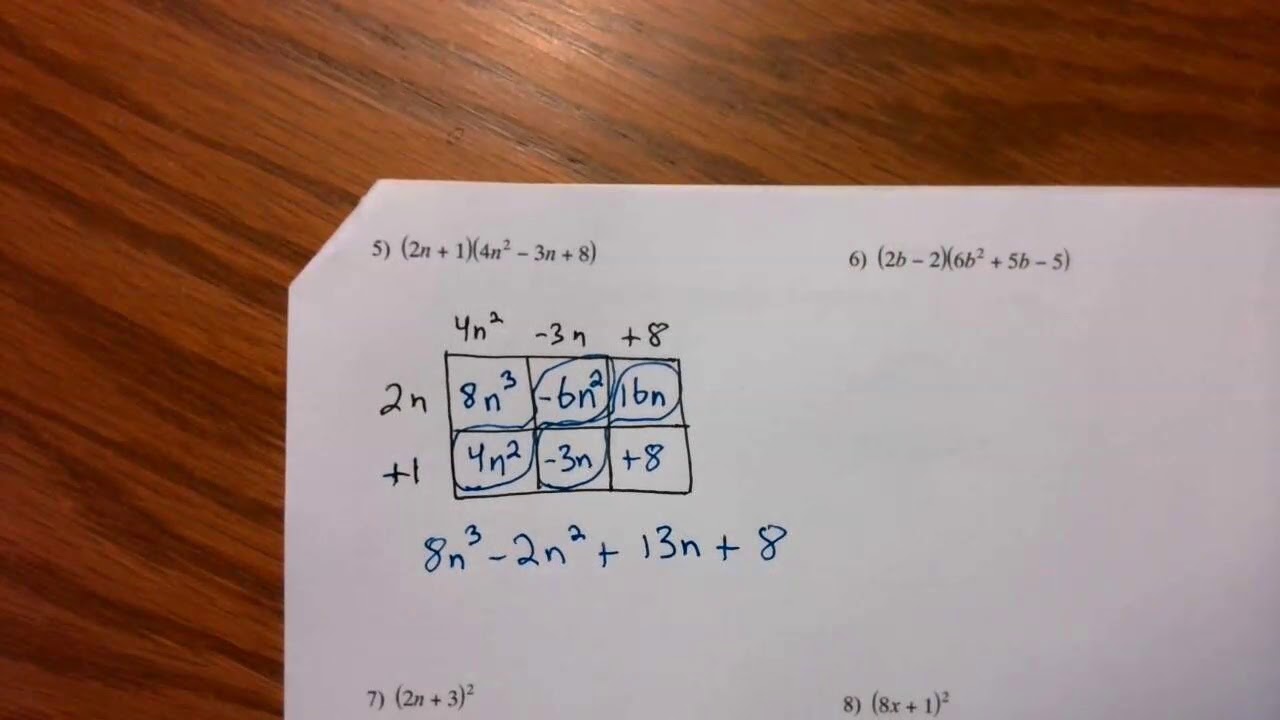 5) (2n + 1)(4n² − 3n + 8)
6) (2b − 2)(6b² + 5b − 5)
4n² -3n +8
2n 8n³ -6n² 16n
+1 4n² -3n +8
8n³ - 2n² + 13n + 8
7) (2n + 3)²
8) (8x + 1)²